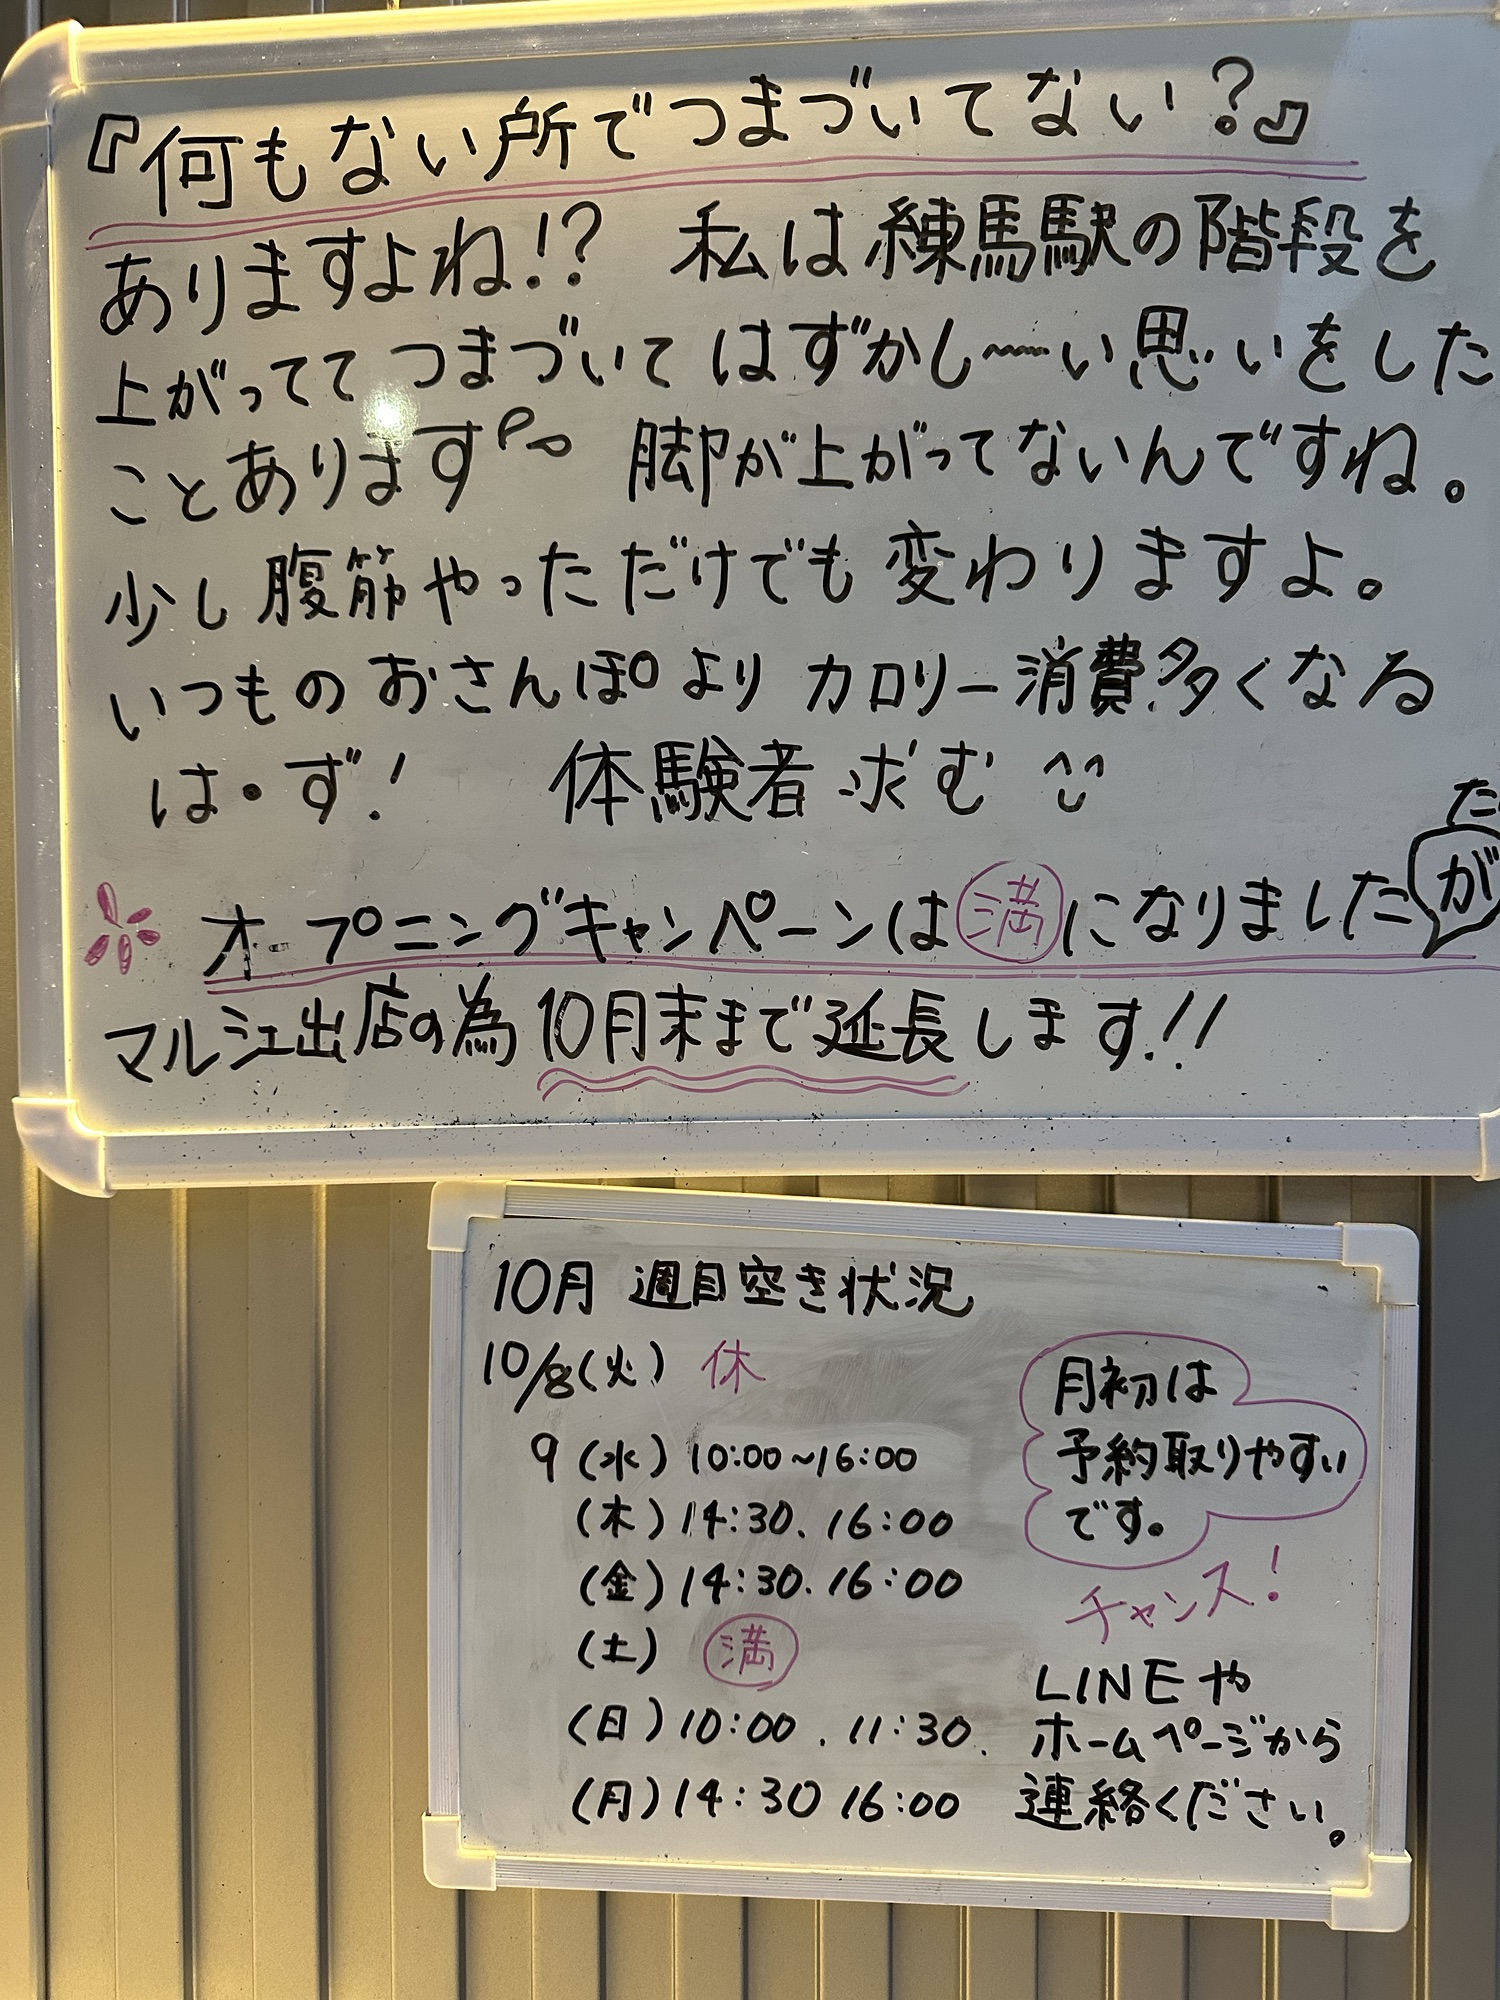 『何もない所でつまづいてない?』
ありますよね!? 私は練馬駅の階段を
上がってて つまづいて はずかし〜い思いをした
ことあります 脚が上がってないんですね。
少し腹筋やっただけでも変わりますよ。
いつものおさんぽよりカロリー消費多くなる
は・ず! 体験者求む
オープニングキャンペーンは満になりました
が
マルシェ出店の為10月末まで延長します!!
10月 週目空き状況
10/8(火) 休
9(水) 10:00~16:00
(木) 14:30. 16:00
(金) 14:30. 16:00
(土) 満
(日) 10:00 . 11:30.
(月) 14:30 16:00
月初は
予約取りやすい
です。
チャンス!
LINEや
ホームページから
連絡ください。